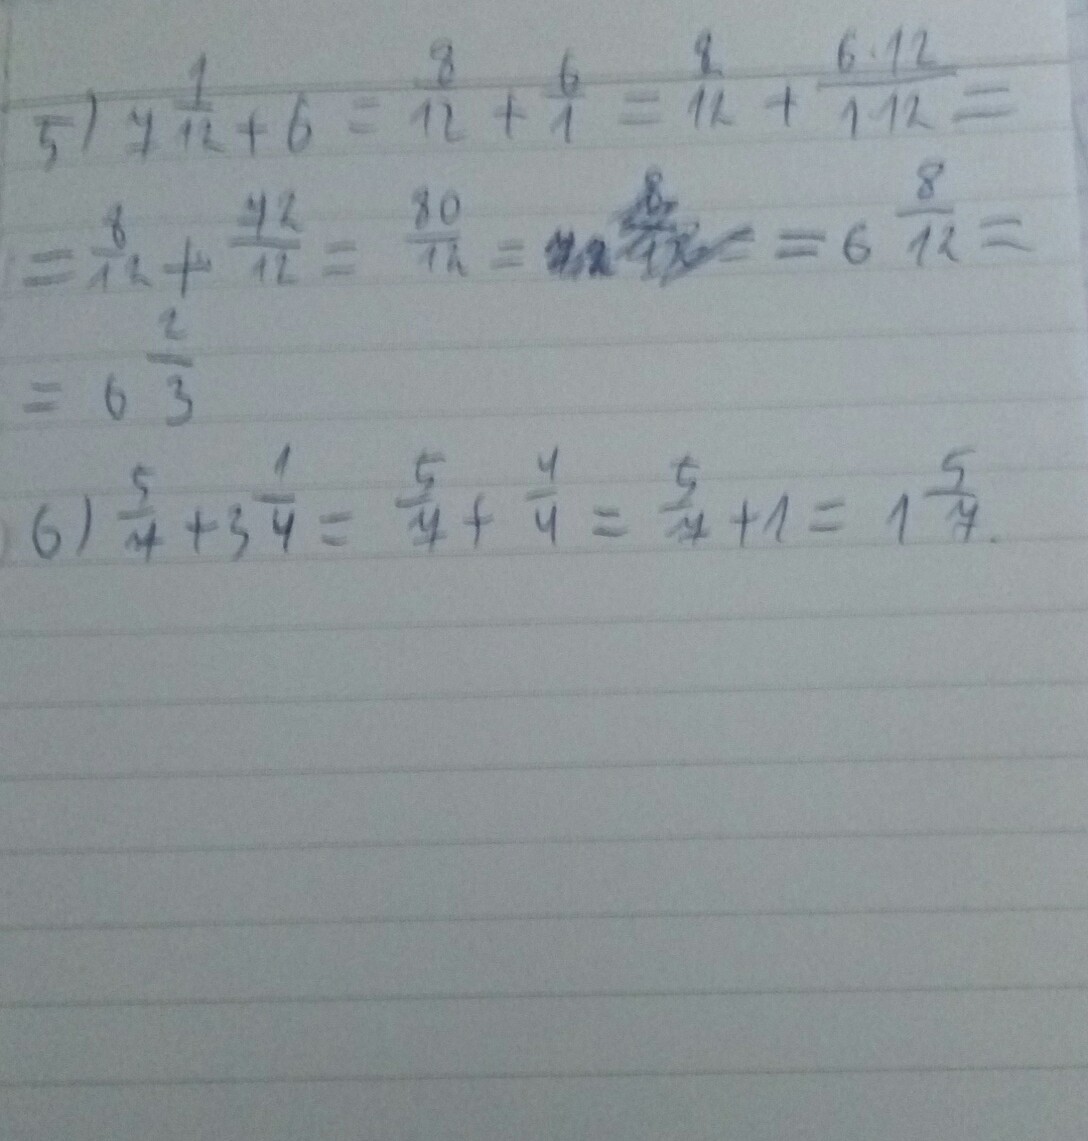 5) 7 1/12 + 6 = 8/12 + 6/1 = 8/12 + 6·12/1·12 =
= 8/12 + 72/12 = 80/12 = = 6 8/12 =
= 6 2/3
6) 5/7 + 3 1/4 = 5/7 + 4/4 = 5/7 + 1 = 1 5/7.